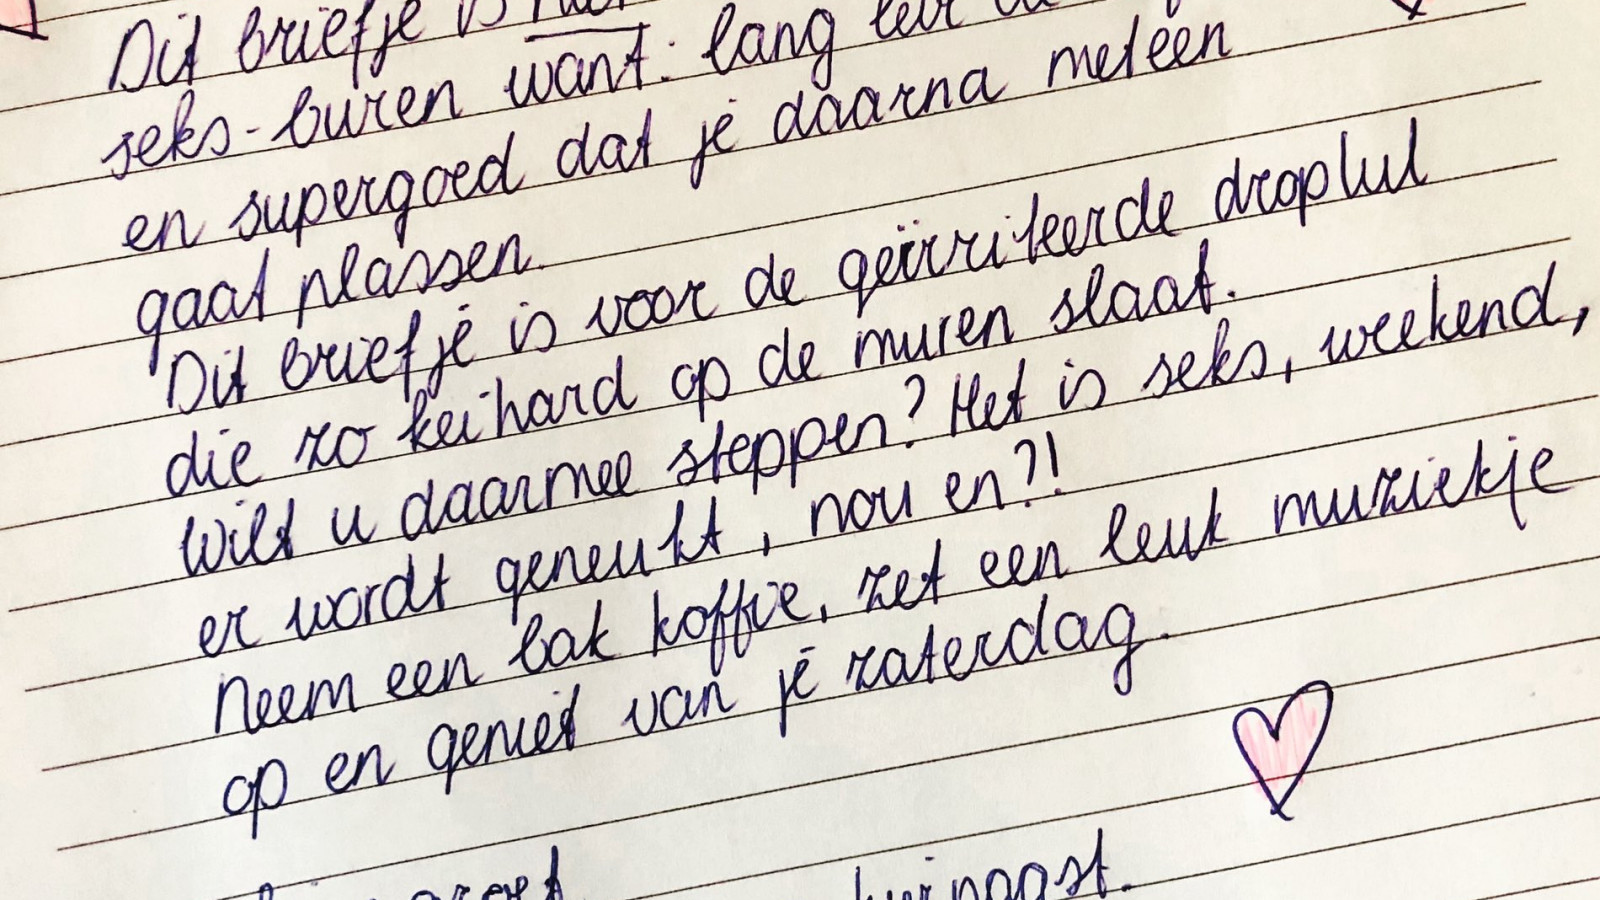 Dit briefje is niet
seks-buren want: lang leve
en supergoed dat je daarna meteen
gaat plassen.
Dit briefje is voor de geïrriteerde droplul
die zo keihard op de muren slaat.
Wilt u daarmee steppen? Het is seks, weekend,
er wordt geneukt, nou en?!
Neem een bak koffie, zet een leuk muziekje
op en geniet van je zaterdag.
groet
hiernaast.